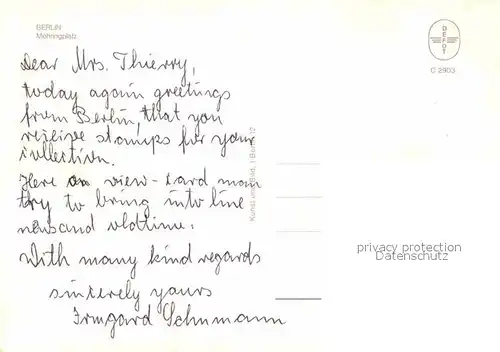 BERLIN
Mehringplatz
DEFOT
C 2903
Dear Mrs. Thierry,
today again greetings
from Berlin, that you
receive stamps for your
collection.
Here on view-card man
try to bring into line
news and oldtime.
With many kind regards
sincerely yours
Irmgard Schumann
Kunst und Bild, 1 Berlin 12
privacy protection
Datenschutz